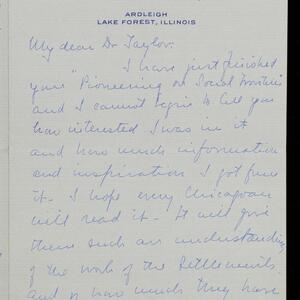 ARDLEIGH
LAKE FOREST, ILLINOIS
My dear Dr Taylor:
I have just finished
your "Pioneering on Social Frontiers"
and I cannot begin to tell you
how interested I was in it
and how much information
and inspiration I got from
it - I hope every Chicagoan
will read it - It will give
them such an understanding
of the work of the Settlements
and of how much they have